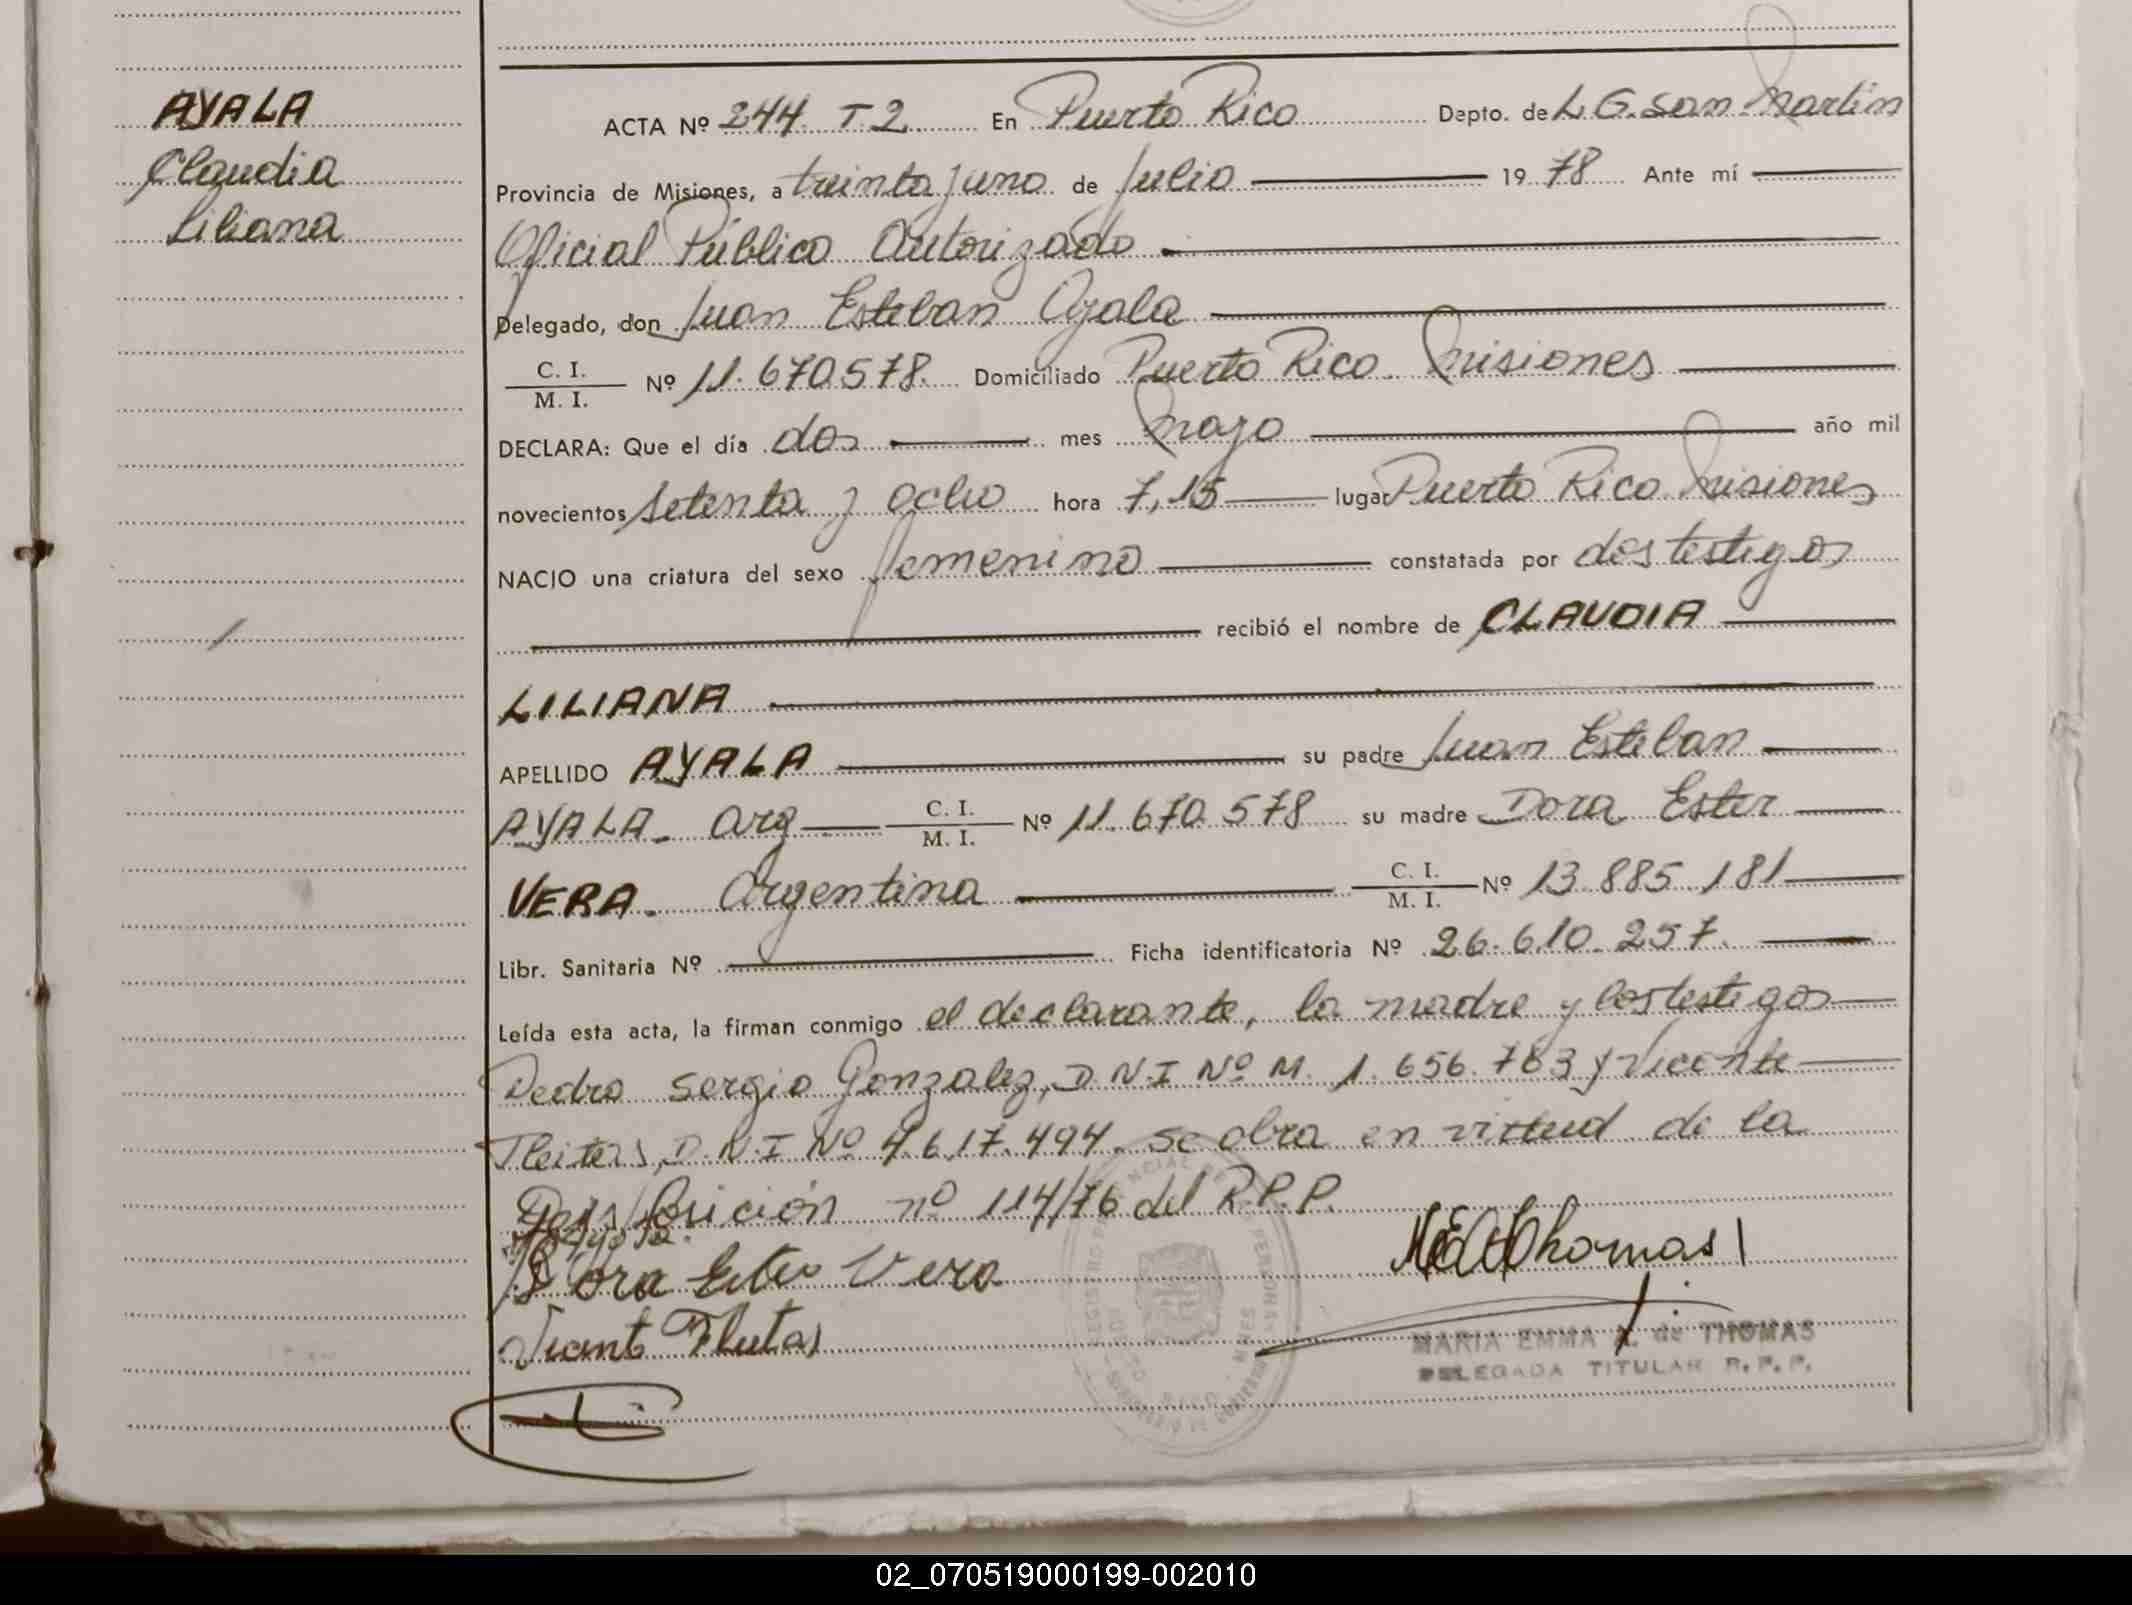 AYALA
Claudia
Liliana
ACTA Nº 244 T2 En Puerto Rico Depto. de L. G. San Martín
Provincia de Misiones, a treinta y uno de Julio 19 78 Ante mí
Oficial Público Autorizado
Delegado, don Juan Esteban Ayala
C. I. / M. I. Nº 11.670.578. Domiciliado Puerto Rico. Misiones
DECLARA: Que el día dos mes Mayo año mil
novecientos setenta y ocho hora 7,15 lugar Puerto Rico Misiones
NACIO una criatura del sexo femenino constatada por dos testigos
recibió el nombre de CLAUDIA
LILIANA
APELLIDO AYALA su padre Juan Esteban
AYALA. Arg C. I. / M. I. Nº 11.670.578 su madre Dora Ester
VERA. Argentina C. I. / M. I. Nº 13.885.181
Libr. Sanitaria Nº Ficha identificatoria Nº 26.610.257.
Leída esta acta, la firman conmigo el declarante, la madre y los testigos
Pedro Sergio Gonzalez, D.N.I Nº M. 1.656.783 y Vicente
Fleitas, D.N.I Nº 4.617.494. se obra en virtud de la
Disposición nº 114/76 del R.P.P.
Dora Ester Vera
MEA Thomas
Vicente Fleitas
MARIA EMMA A. de THOMAS
DELEGADA TITULAR R. P. P.
02_070519000199-002010